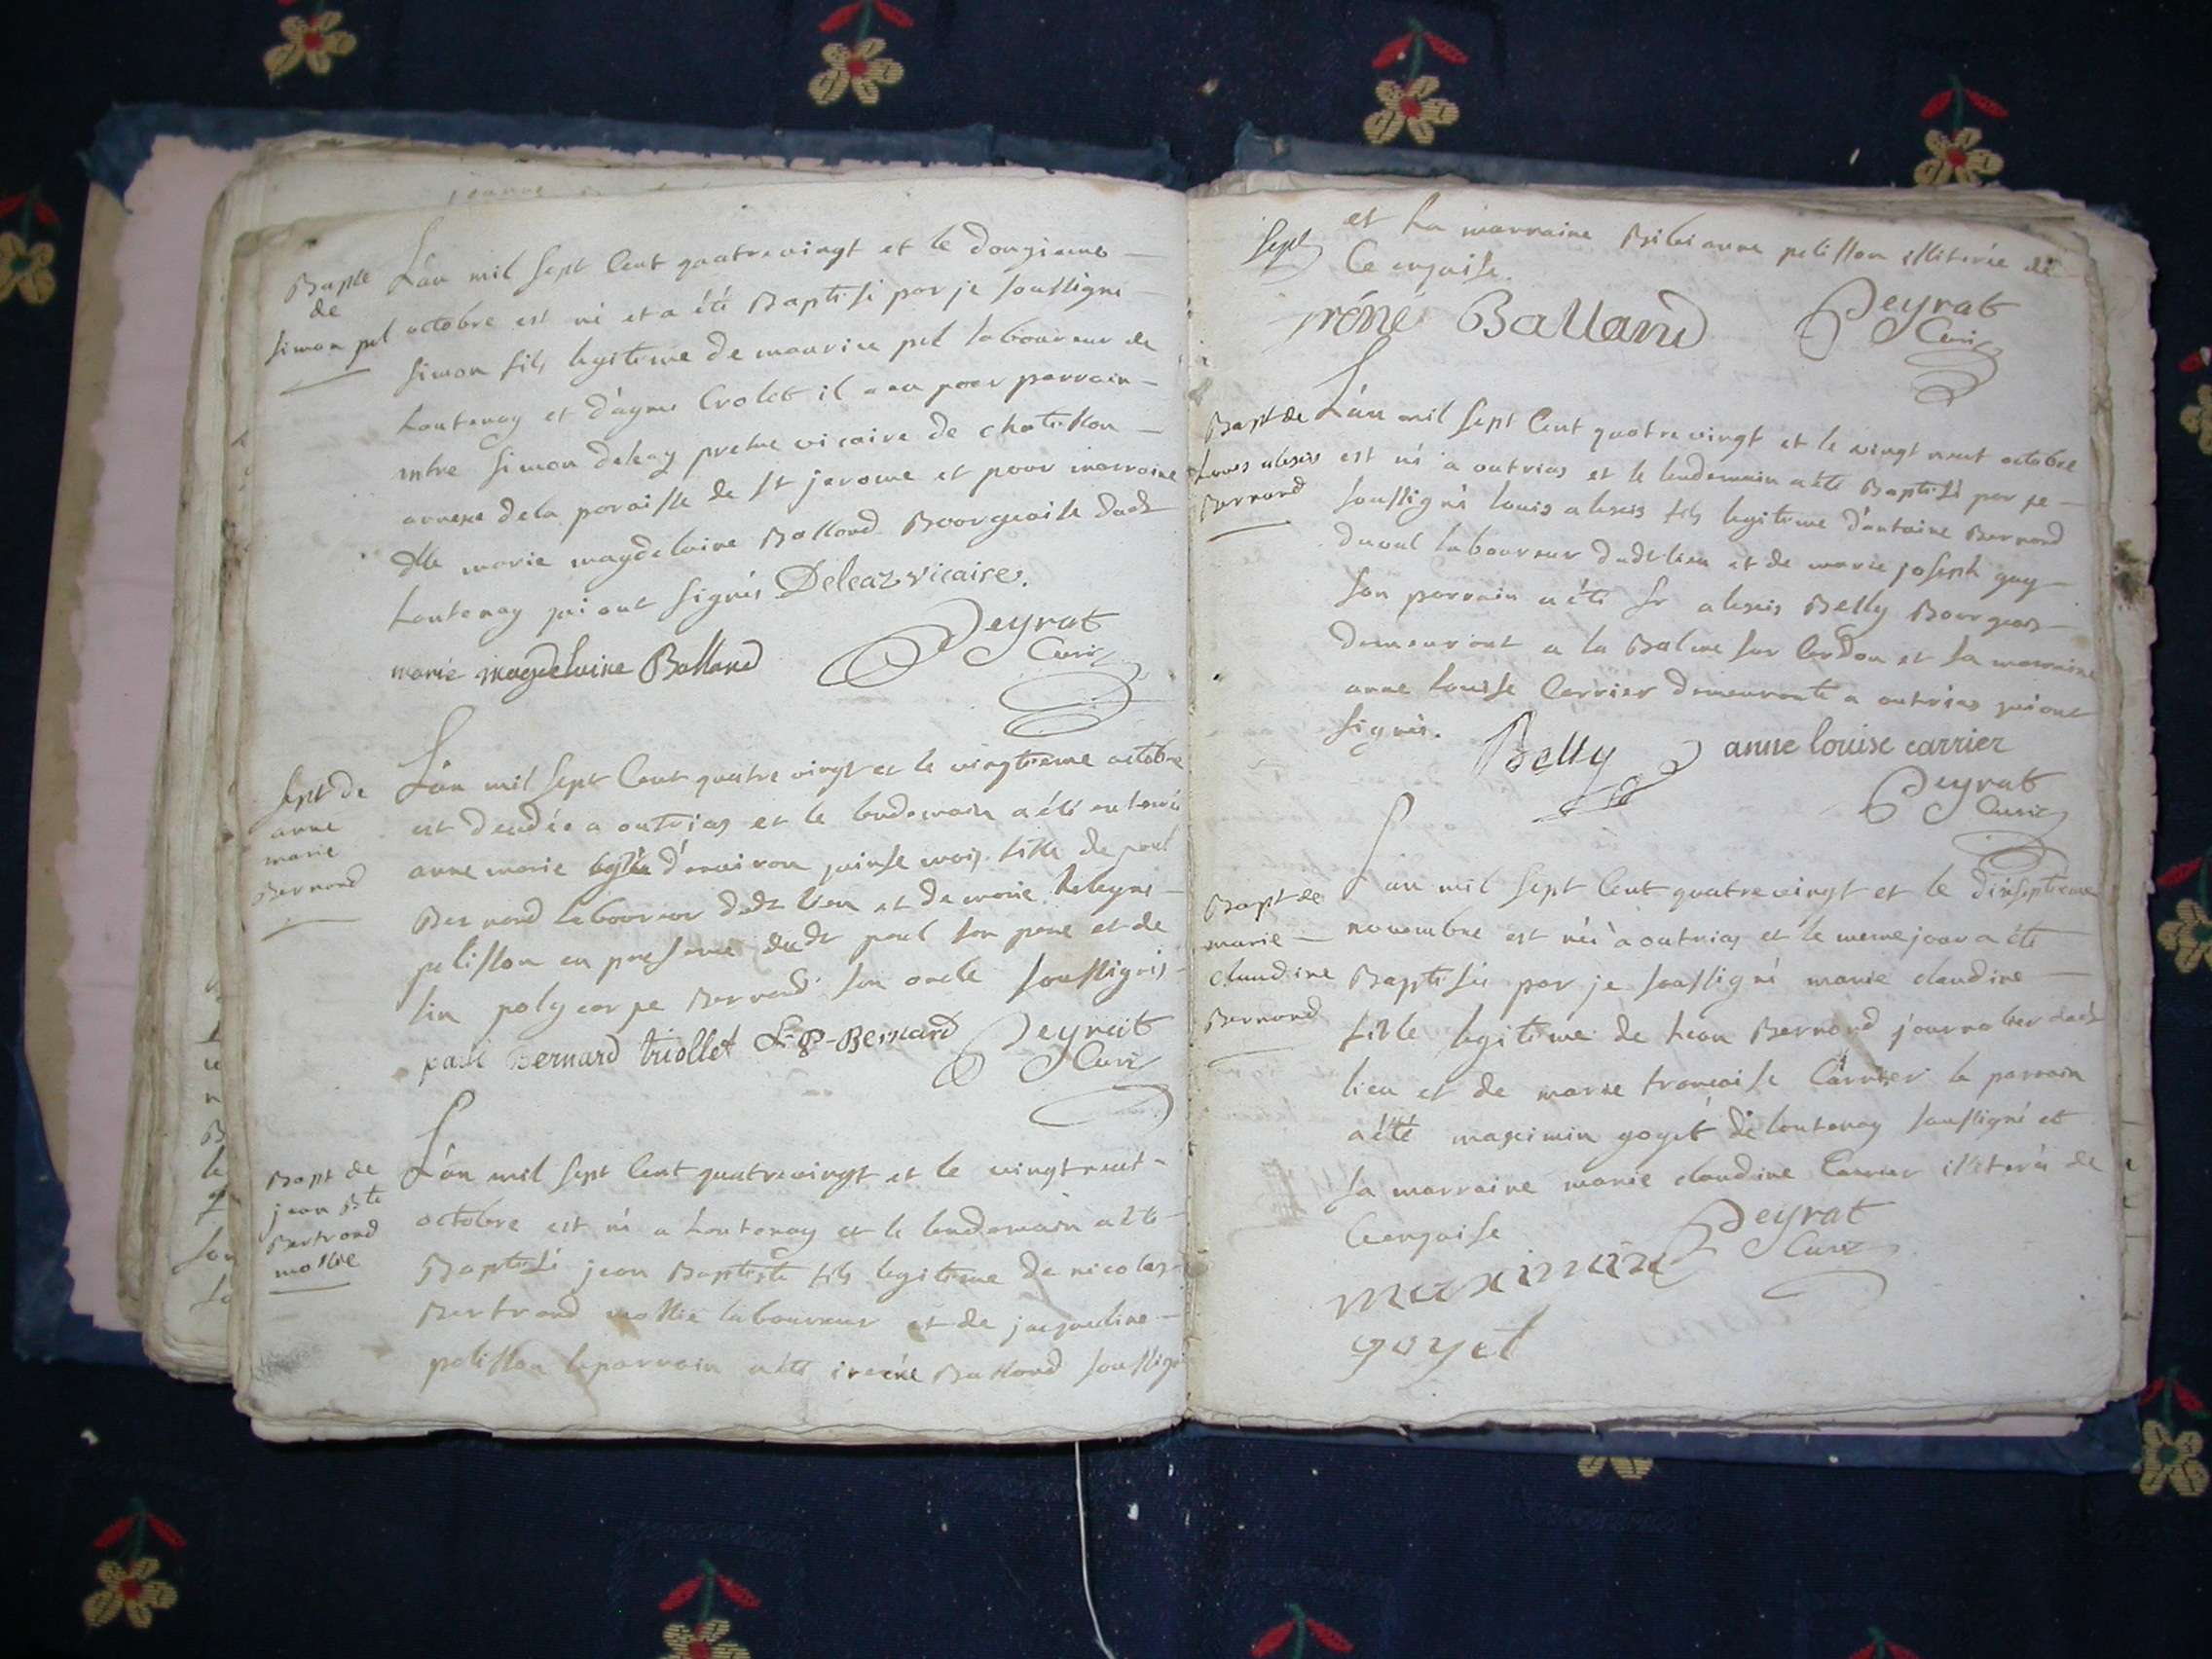 Bapte
de
simon pel
L'an mil sept cent quatrevingt et le douzieme
octobre est né et a été Baptisé par je soussigné
simon fils legitime de maurice pel laboureur de
Lantenay et d'ayme Crolet il a eu pour parrain
mtre simon deleaz pretre vicaire de chatillon
annexe dela paroisse de st jerome et pour marraine
dlle marie magdelaine Balland Bourgeoise dudt
Lantenay qui ont signés Deleaz vicaire.
marie magdelaine Balland Peyrat
Curé
sept de
anne
marie
Bernard
L'an mil sept cent quatre vingt et le vingtieme octobre
est decedée a outrias et le lendemain a été enterrée
anne marie agée d'environ quinse mois fille de paul
Bernard laboureur dudt lieu et de marie
pelisson en presence dudt paul son pere et de
polycarpe Bernard son oncle soussignés
paul Bernard triollet P-Bernard Peyrat
Curé
Bapt de
jean Bte
Bertrand
mollie
L'an mil sept cent quatrevingt et le vingt neuf
octobre est né a Lantenay et le lendemain a été
Baptisé jean Baptiste fils legitime de nicolas
Bertrand mollie laboureur et de jacqueline
pelisson le parrain a été irené Balland soussigné
sept
et la marraine Bibianne pelisson illiterée de
ce enquise.
iréné Balland Peyrat
Curé
Bapt de
Louis alexis
Bernard
L'an mil sept cent quatrevingt et le vingt neuf octobre
est né a outrias et le lendemain a été Baptisé par je
soussigné louis alexis fils legitime d'antoine Bernard
laboureur dudt lieu et de marie joseph guy
son parrain a été sr alexis Belly Bourgeois
demeurant a la Balme sur Cerdon et sa marraine
anne louise Carrier demeurante a outrias qui ont
signés. Belly anne louise carrier
Peyrat
Curé
Bapt de
marie
claudine
Bernard
L'an mil sept cent quatrevingt et le dixseptieme
novembre est née a outrias et le meme jour a été
Baptisée par je soussigné marie claudine
fille legitime de jean Bernard journalier dudt
lieu et de marie francaise Carrier le parrain
a été maximin goyet de lantenay soussigné et
sa marraine marie claudine Carrier illeterée de
ce enquise Peyrat
Curé
maximin
goyet